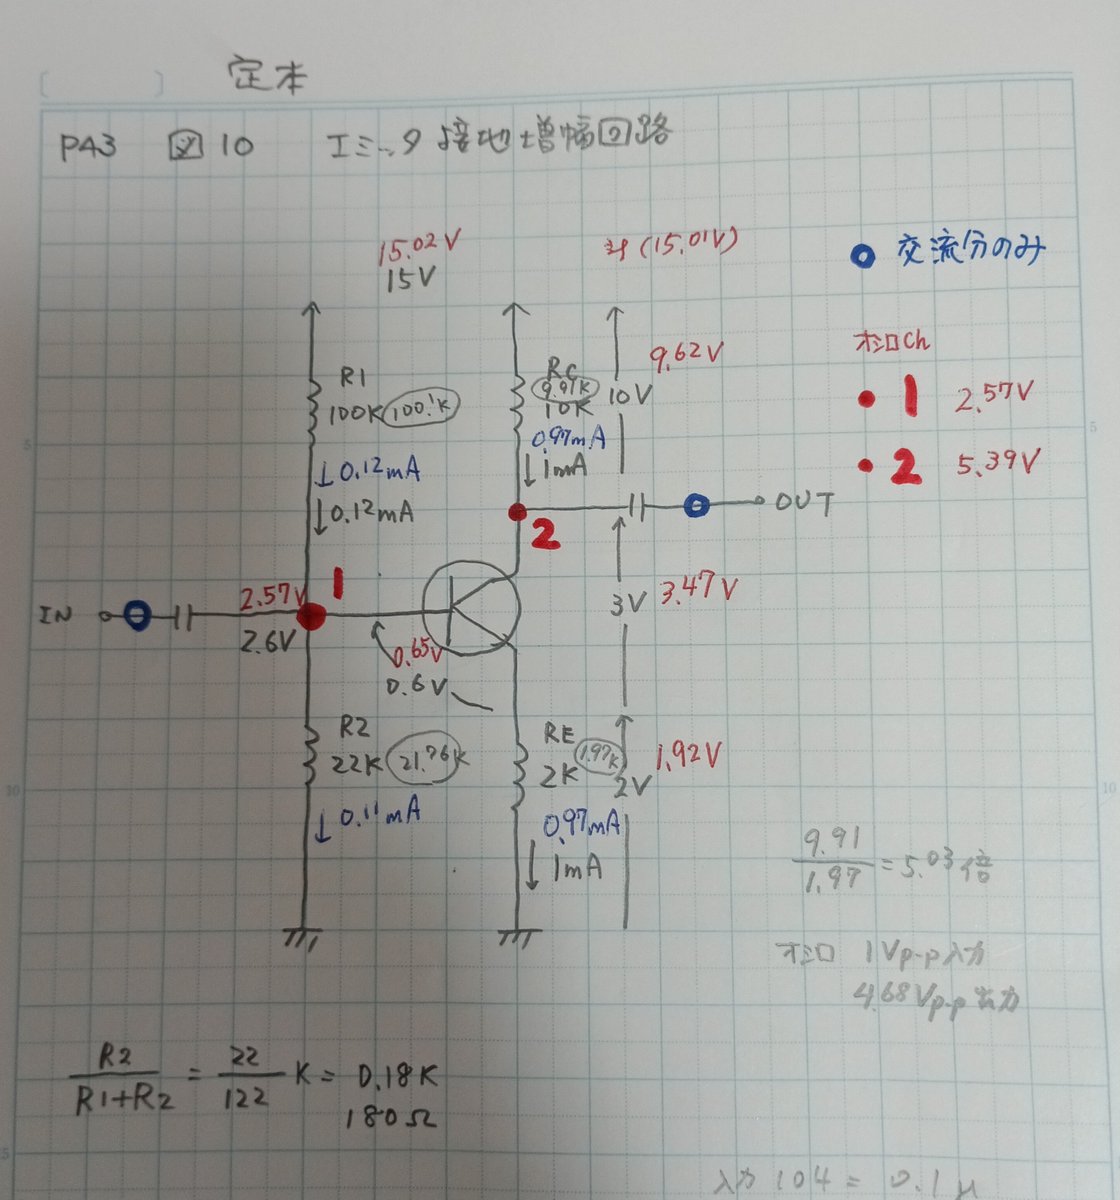 定本
P43 図10 エミッタ接地増幅回路
15.02V
15V
計(15.01V)
交流分のみ
オシロCh
1 2.57V
2 5.39V
R1
100K 100.1K
↓0.12mA
↓0.12mA
RC
9.91K
10K
0.97mA
↓1mA
9.62V
10V
2
OUT
IN
2.57V
2.6V
1
0.65V
0.6V
3V 3.47V
R2
22K 21.76K
↓0.11mA
RE
2K 1.97K
0.97mA
↓1mA
1.92V
2V
9.91
1.97
=5.03倍
オシロ 1Vp-p入力
4.68Vp-p出力
R2
R1+R2
=
22
122
K = 0.18K
180Ω
入力 104 = 0.1μ